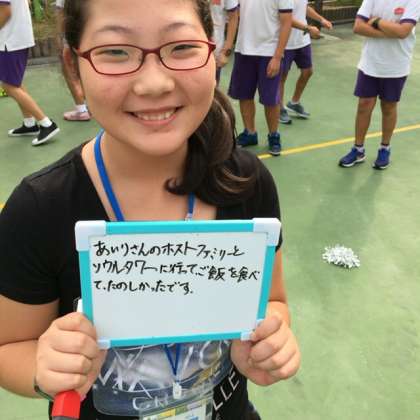 あいりさんのホストファミリーと
ソウルタワーに行って、ご飯を食べ
て、たのしかったです。